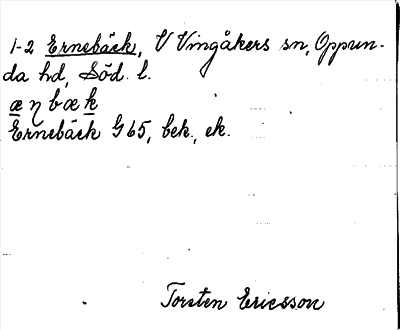 1-2 Ernebäck, V Vingåkers sn, Oppun-
da hd, Söd. l.
æ η b æ k
Ernebäck G 65, bek., ek.
Torsten Ericsson